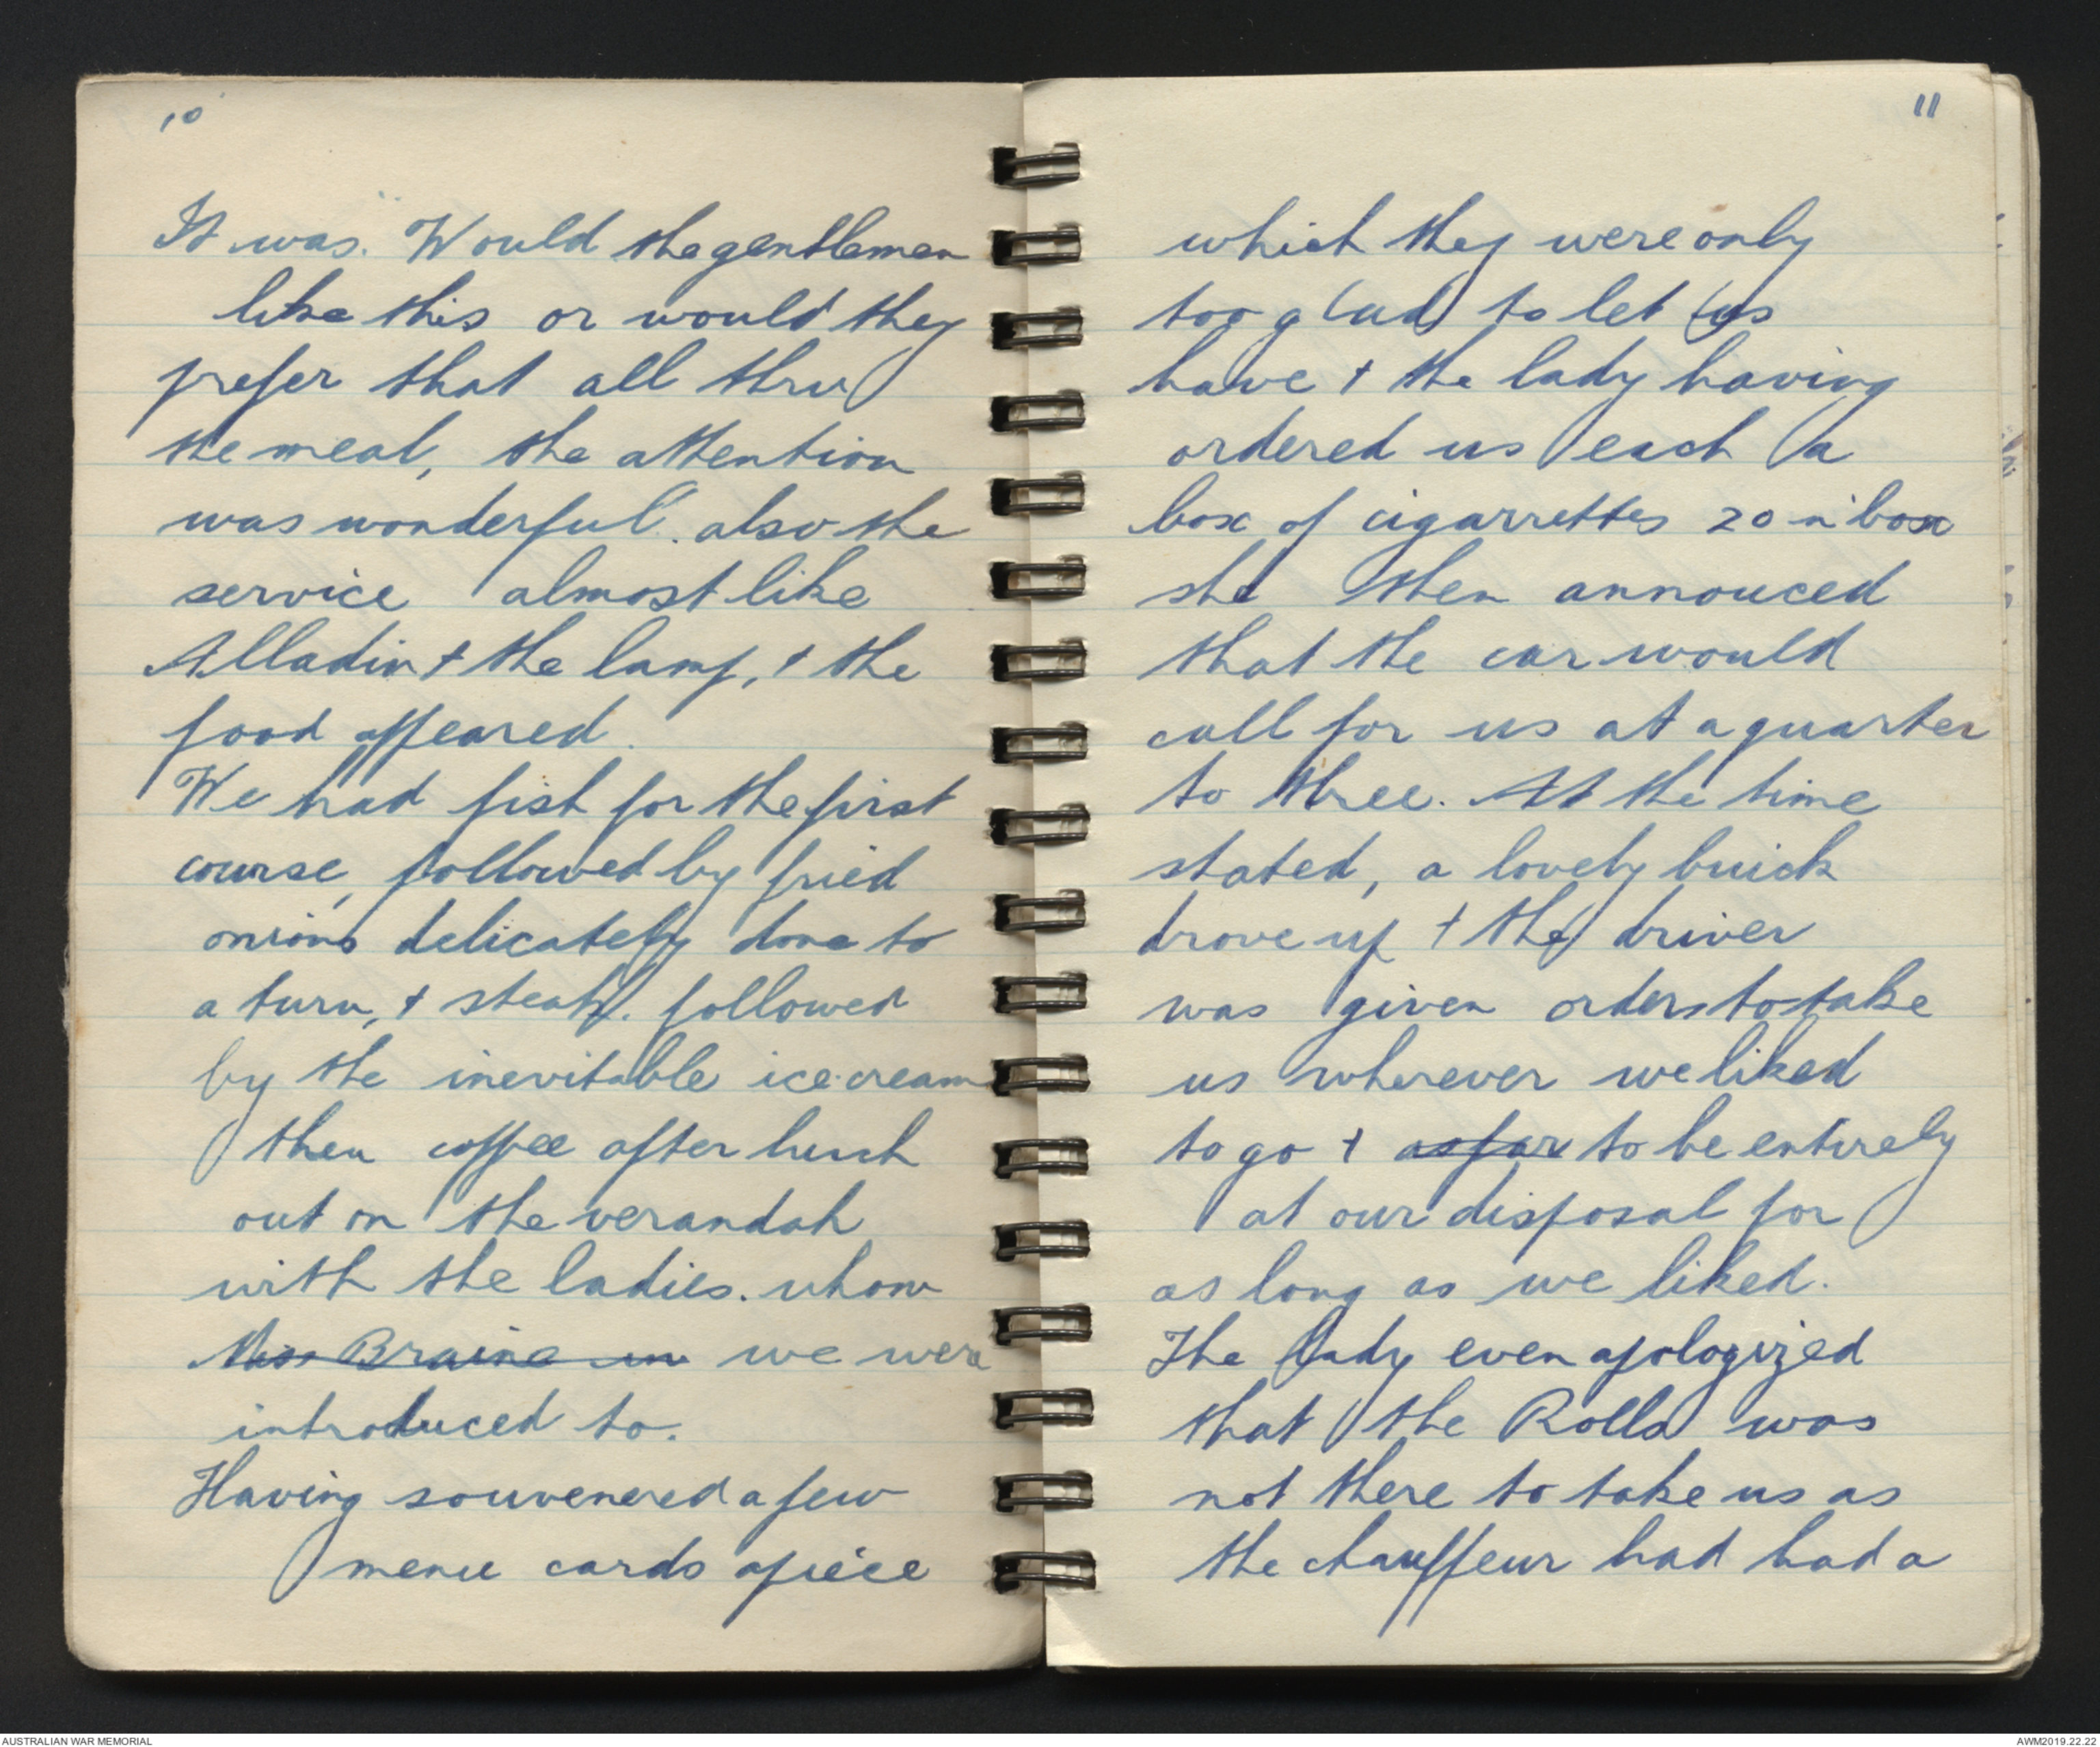 10
It was. Would the gentlemen
like this or would they
prefer that all thru
the meal, the attention
was wonderful. also the
service almost like
Alladin + the lamp, + the
food appeared.
We had fish for the first
course, followed by fried
onions delicately done to
a turn, + steak. followed
by the inevitable ice-cream
then coffee after lunch
out on the verandah
with the ladies. whom
Miss Braine we were
introduced to.
Having souvenered a few
menu cards apiece
11
which they were only
too glad to let us
have + the lady having
ordered us each a
box of cigarrettes 20 in box
she then annouced
that the car would
call for us at a quarter
to three. At the time
stated, a lovely buick
drove up + the driver
was given orders to take
us wherever we liked
to go + as far to be entirely
at our disposal for
as long as we liked.
The lady even apologized
that the Rolls was
not there to take us as
the chauffeur had had a
AUSTRALIAN WAR MEMORIAL
AWM2019.22.22